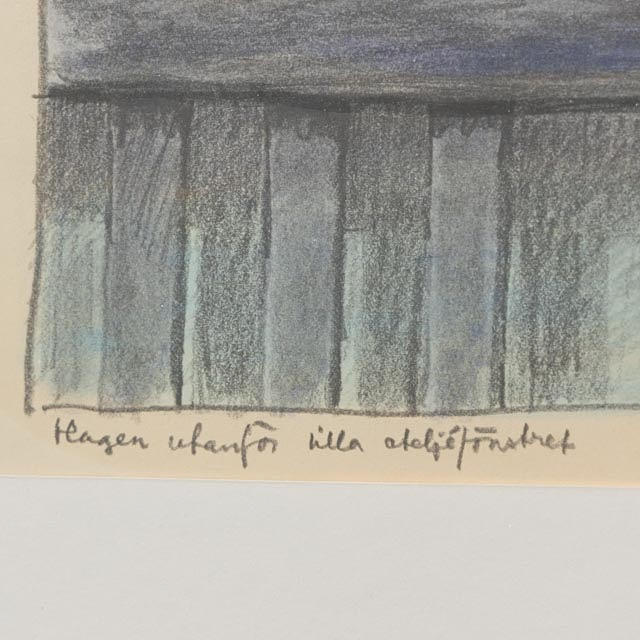 Hagen utanför lilla ateljéfönstret